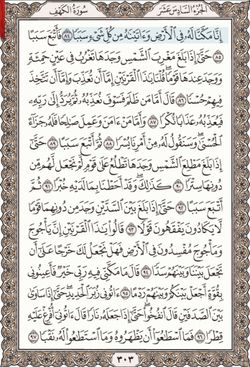 الجزء السادس عشر
سورة الكهف
إِنَّا مَكَّنَّا لَهُۥ فِي ٱلْأَرْضِ وَءَاتَيْنَٰهُ مِن كُلِّ شَىْءٍ سَبَبًا ٨٤ فَأَتْبَعَ سَبَبًا
٨٥ حَتَّىٰٓ إِذَا بَلَغَ مَغْرِبَ ٱلشَّمْسِ وَجَدَهَا تَغْرُبُ فِي عَيْنٍ حَمِئَةٍ
وَوَجَدَ عِندَهَا قَوْمًا قُلْنَا يَٰذَا ٱلْقَرْنَيْنِ إِمَّآ أَن تُعَذِّبَ وَإِمَّآ أَن تَتَّخِذَ
فِيهِمْ حُسْنًا ٨٦ قَالَ أَمَّا مَن ظَلَمَ فَسَوْفَ نُعَذِّبُهُۥ ثُمَّ يُرَدُّ إِلَىٰ رَبِّهِۦ
فَيُعَذِّبُهُۥ عَذَابًا نُّكْرًا ٨٧ وَأَمَّا مَنْ ءَامَنَ وَعَمِلَ صَٰلِحًا فَلَهُۥ جَزَآءً
ٱلْحُسْنَىٰ وَسَنَقُولُ لَهُۥ مِنْ أَمْرِنَا يُسْرًا ٨٨ ثُمَّ أَتْبَعَ سَبَبًا ٨٩ حَتَّىٰٓ
إِذَا بَلَغَ مَطْلِعَ ٱلشَّمْسِ وَجَدَهَا تَطْلُعُ عَلَىٰ قَوْمٍ لَّمْ نَجْعَل لَّهُم مِّن
دُونِهَا سِتْرًا ٩٠ كَذَٰلِكَ وَقَدْ أَحَطْنَا بِمَا لَدَيْهِ خُبْرًا ٩١ ثُمَّ أَتْبَعَ
سَبَبًا ٩٢ حَتَّىٰٓ إِذَا بَلَغَ بَيْنَ ٱلسَّدَّيْنِ وَجَدَ مِن دُونِهِمَا قَوْمًا
لَّا يَكَادُونَ يَفْقَهُونَ قَوْلًا ٩٣ قَالُوا۟ يَٰذَا ٱلْقَرْنَيْنِ إِنَّ يَأْجُوجَ
وَمَأْجُوجَ مُفْسِدُونَ فِي ٱلْأَرْضِ فَهَلْ نَجْعَلُ لَكَ خَرْجًا عَلَىٰٓ أَن
تَجْعَلَ بَيْنَنَا وَبَيْنَهُمْ سَدًّا ٩٤ قَالَ مَا مَكَّنِّي فِيهِ رَبِّي خَيْرٌ فَأَعِينُونِي
بِقُوَّةٍ أَجْعَلْ بَيْنَكُمْ وَبَيْنَهُمْ رَدْمًا ٩٥ ءَاتُونِي زُبَرَ ٱلْحَدِيدِ حَتَّىٰٓ إِذَا سَاوَىٰ
بَيْنَ ٱلصَّدَفَيْنِ قَالَ ٱنفُخُوا۟ حَتَّىٰٓ إِذَا جَعَلَهُۥ نَارًا قَالَ ءَاتُونِىٓ أُفْرِغْ عَلَيْهِ
قِطْرًا ٩٦ فَمَا ٱسْطَٰعُوٓا۟ أَن يَظْهَرُوهُ وَمَا ٱسْتَطَٰعُوا۟ لَهُۥ نَقْبًا ٩٧
٣٠٣